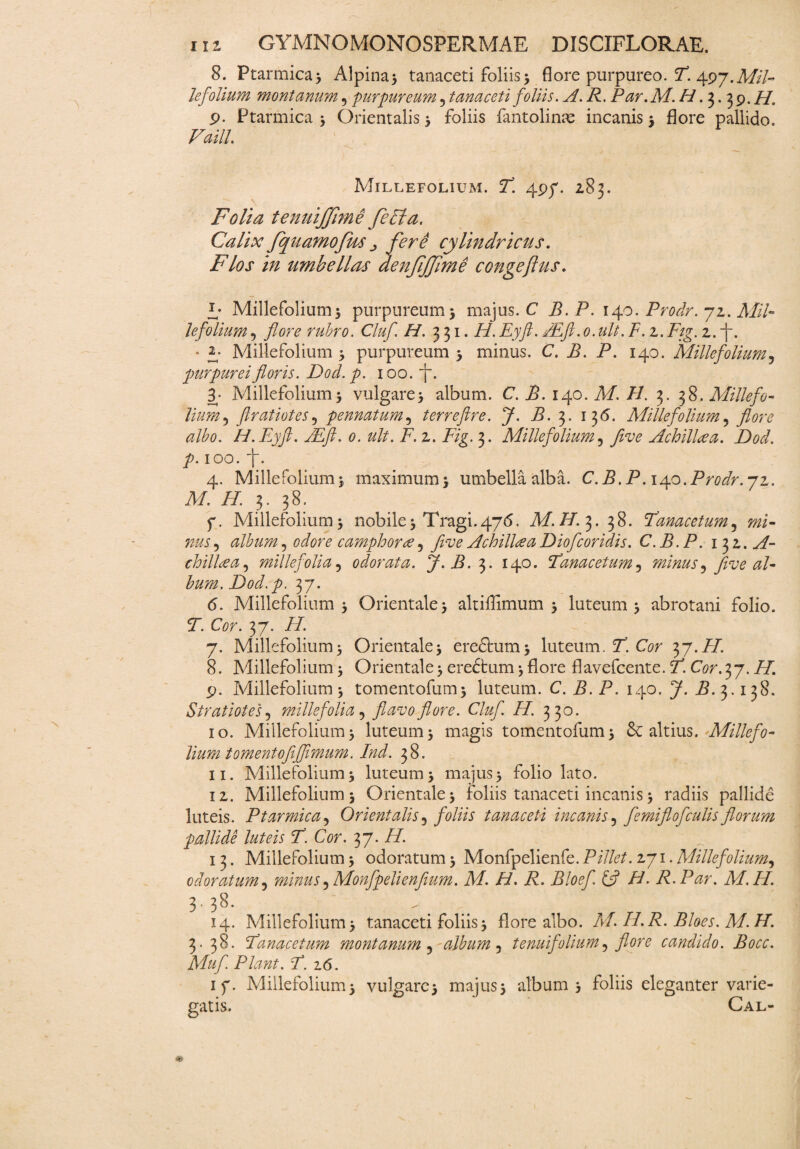 112 GYMNOMONOSPERMAE DISCIFLORAE.
8. Ptarmica; Alpina; tanaceti foliis; flore purpureo. T. 497. Mil-
lefolium montanum, purpureum, tanaceti foliis. A. R. Par. M. H. 3. 39. H.
9. Ptarmica; Orientalis; foliis ſantolinæ incanis; flore pallido.
Vaill.
MILLEFOLIUM. T. 495. 283.
Folia tenuiſſimê ſecta.
Calix ſquamoſus, ferê cylindricus.
Flos in umbellas denſiſſimê congeſtus.
1. Millefolium; purpureum; majus. C B. P. 140. Prodr. 72. Mil-
lefolium, flore rubro. Cluſ. H. 331. H. Eyſt. Æſt. o. ult. F. 2. Fig. 2. †.
2. Millefolium; purpureum; minus. C. B. P. 140. Millefolium,
purpurei floris. Dod. p. 100. †.
3. Millefolium; vulgare; album. C. B. 140. M. H. 3. 38. Millefo-
lium, ſtratiotes, pennatum, terreſtre. J. B. 3. 136. Millefolium, flore
albo. H. Eyſt. Æſt. o. ult. F. 2. Fig. 3. Millefolium, ſive Achillæa. Dod.
p. 100. †.
4. Millefolium; maximum; umbellâ albâ. C. B. P. 140. Prodr. 72.
M. H. 3. 38.
5. Millefolium; nobile; Tragi. 476. M. H. 3. 38. Tanacetum, mi-
nus, album, odore camphoræ, ſive Achillæa Dioſcoridis. C. B. P. 132. A-
chillæa, millefolia, odorata. J. B. 3. 140. Tanacetum, minus, ſive al-
bum. Dod. p. 37.
6. Millefolium; Orientale; altiſſimum; luteum; abrotani folio.
T. Cor. 37. H.
7. Millefolium; Orientale; erectum; luteum. T. Cor 37. H.
8. Millefolium; Orientale; erectum; flore flaveſcente. T. Cor. 37. H.
9. Millefolium; tomentoſum; luteum. C. B. P. 140. J. B. 3. 138.
Stratiotes, millefolia, flavo flore. Cluſ. H. 330.
10. Millefolium; luteum; magis tomentoſum; & altius. Millefo-
lium tomentoſiſſimum. Ind. 38.
11. Millefolium; luteum; majus; folio lato.
12. Millefolium; Orientale; foliis tanaceti incanis; radiis pallidê
luteis. Ptarmica, Orientalis, foliis tanaceti incanis, ſemifloſculis florum
pallidê luteis T. Cor. 37. H.
13. Millefolium; odoratum; Monſpelienſe. Pillet. 271. Millefolium,
odoratum, minus, Monſpelienſium. M. H. R. Bloeſ. & H. R. Par. M. H.
3. 38.
14. Millefolium; tanaceti foliis; flore albo. M. H. R. Bloes. M. H.
3. 38. Tanacetum montanum, album, tenuifolium, flore candido. Bocc.
Muſ. Plant. T. 26.
15. Millefolium; vulgare; majus; album; foliis eleganter varie-
gatis. CAL-